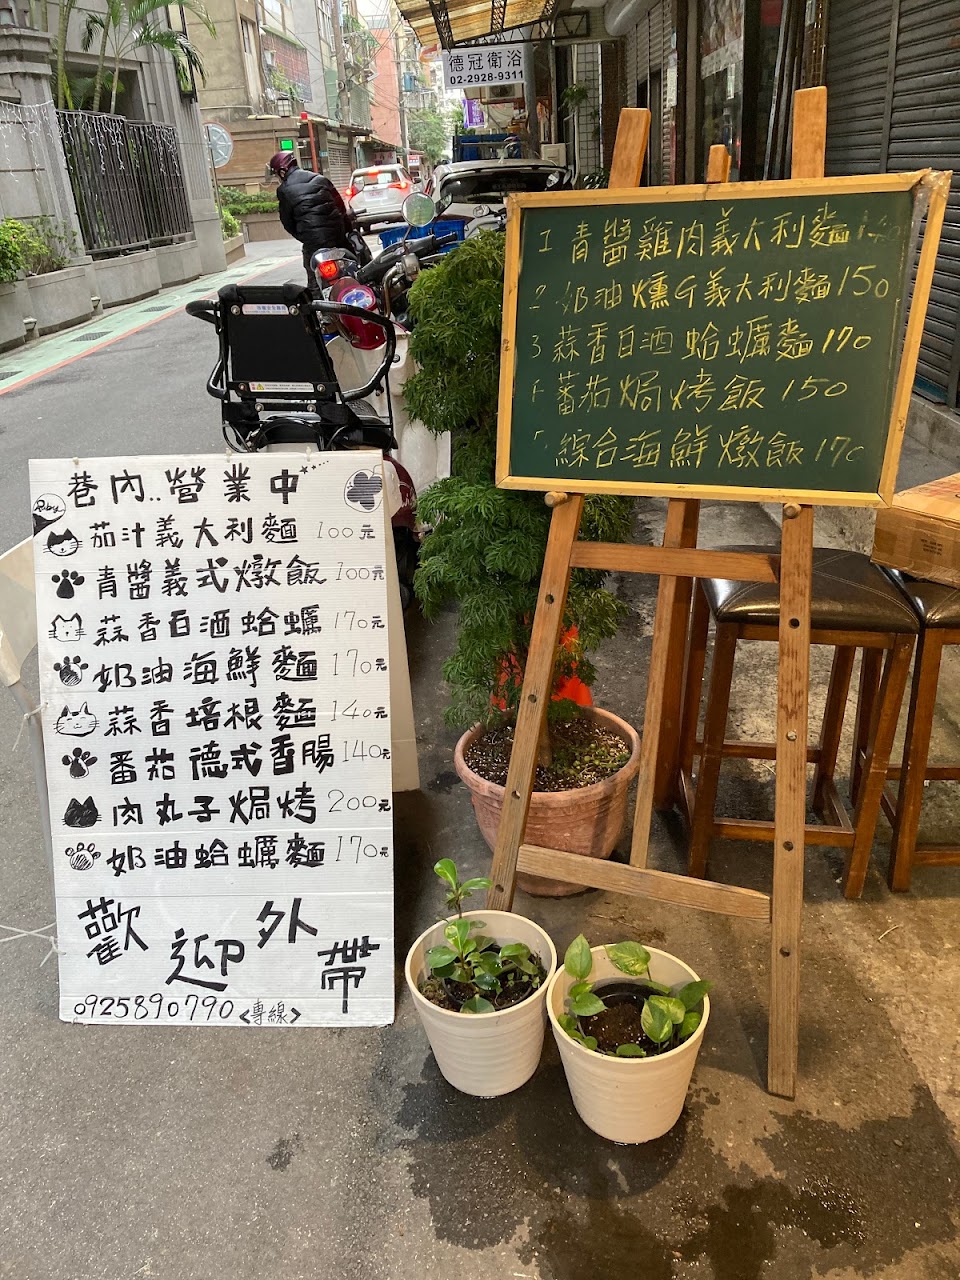 德冠衛浴
02-2928-9311
1 青醬雞肉義大利麵
2 奶油燻G義大利麵150
3 蒜香白酒蛤蠣麵170
番茄焗烤飯150
綜合海鮮燉飯170
巷內..營業中
Ruby
茄汁義大利麵 100元
青醬義式燉飯 100元
蒜香白酒蛤蠣 170元
奶油海鮮麵 170元
蒜香培根麵 140元
番茄德式香腸 140元
肉丸子焗烤 200元
奶油蛤蠣麵 170元
歡迎外帶
0925890790 <專線>